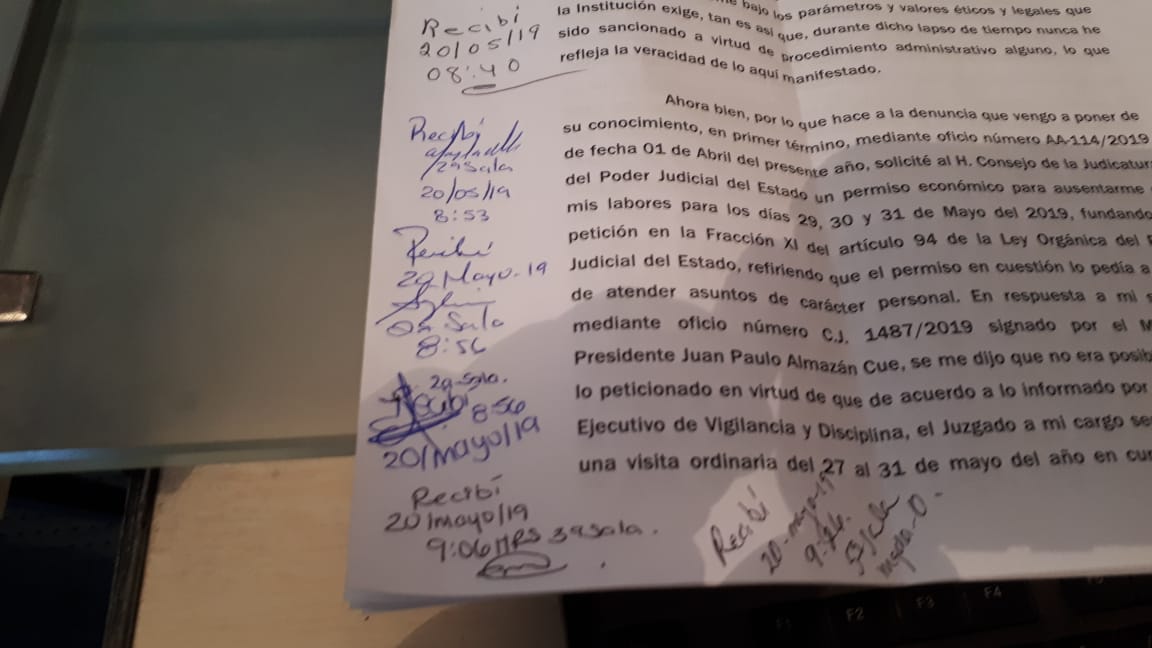 Recibí
20/05/19
08:40
Recibí
2a Sala
20/05/19
8:53
Recibí
20 Mayo-19
Sala
8:56
2a Sala.
Recibí 8:56
20/mayo/19
Recibí
20/mayo/19
9:06 HRS 3a Sala.
bajo los parámetros y valores éticos y legales que
la Institución exige, tan es así que, durante dicho lapso de tiempo nunca he
sido sancionado a virtud de procedimiento administrativo alguno, lo que
refleja la veracidad de lo aquí manifestado.
Ahora bien, por lo que hace a la denuncia que vengo a poner de
su conocimiento, en primer término, mediante oficio número AA-114/2019
de fecha 01 de Abril del presente año, solicité al H. Consejo de la Judicatur
del Poder Judicial del Estado un permiso económico para ausentarme
mis labores para los días 29, 30 y 31 de Mayo del 2019, fundando
petición en la Fracción XI del artículo 94 de la Ley Orgánica del
Judicial del Estado, refiriendo que el permiso en cuestión lo pedía a
de atender asuntos de carácter personal. En respuesta a mi
mediante oficio número C.J. 1487/2019 signado por el M
Presidente Juan Paulo Almazán Cue, se me dijo que no era posib
lo peticionado en virtud de que de acuerdo a lo informado por
Ejecutivo de Vigilancia y Disciplina, el Juzgado a mi cargo se
una visita ordinaria del 27 al 31 de mayo del año en cur
Recibí
20-mayo-19
F2
F3
F4